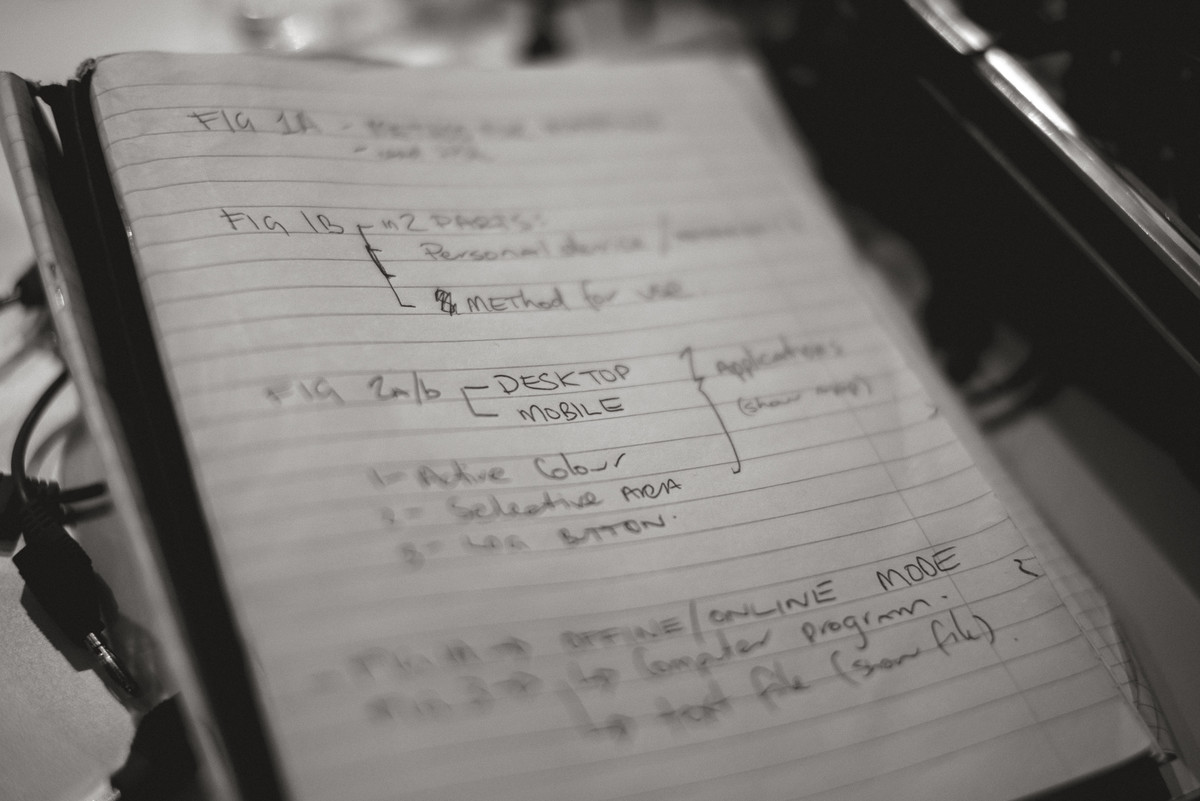 FIG 1A -
FIG 1B - in 2 PARTS:
Personal device /
METhod for use
FIG 2a/b - DESKTOP Applications
MOBILE (show map)
1- Active Colour
2- Selective AREA
3- BUTTON.
→ OFFINE/ONLINE MODE
→ Computer program.
→ text file (show file).